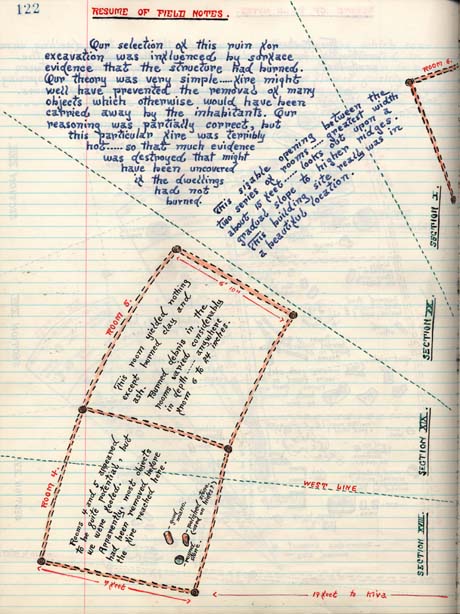 122
RESUME OF FIELD NOTES.
Our selection of this ruin for
excavation was influenced by surface
evidence that the structure had burned.
Our theory was very simple.....fire might
well have prevented the removal of many
objects which otherwise would have been
carried away by the inhabitants. Our
reasoning was partially correct, but
this particular fire was terribly
hot.....so that much evidence
was destroyed that might
have been uncovered
if the dwellings
had not
burned.
This sizable opening between the
two series of rooms.....greatest width
about 15 feet looks out upon a
gradual slope to higher ridges.
This building site really was in
a beautiful location.
ROOM 6.
SECTION X.
SECTION IX.
SECTION XIX.
SECTION XVIII.
ROOM 5.
6' 10"
This room yielded nothing
except burned clay and
ash.
Burned debris in the
rooms varied considerably
in depth.....anywhere
from 6 to 24 inches.
ROOM 4.
Rooms 4 and 5 appeared
to be quite potential, but
we were fooled.
Apparently, most objects
had been removed before
the fire reached here.
stone.
polishing stone.
stone.
WEST LINE
9 feet
19 feet to kiva